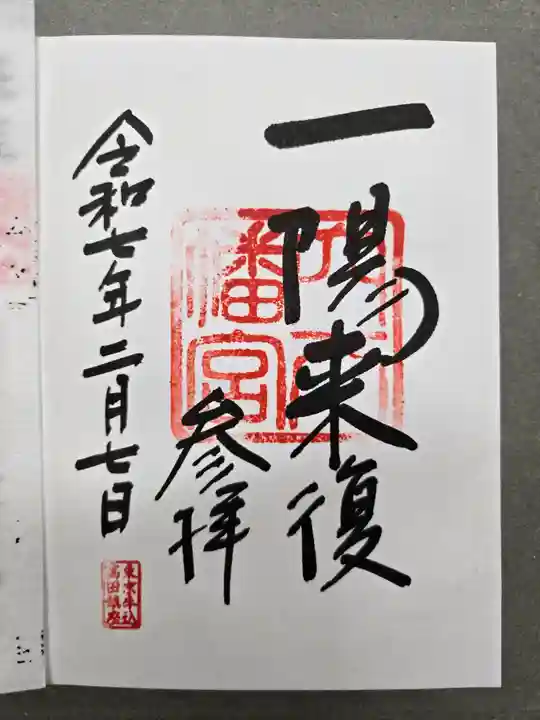 一陽来復
参拝
令和七年二月七日
八幡宮